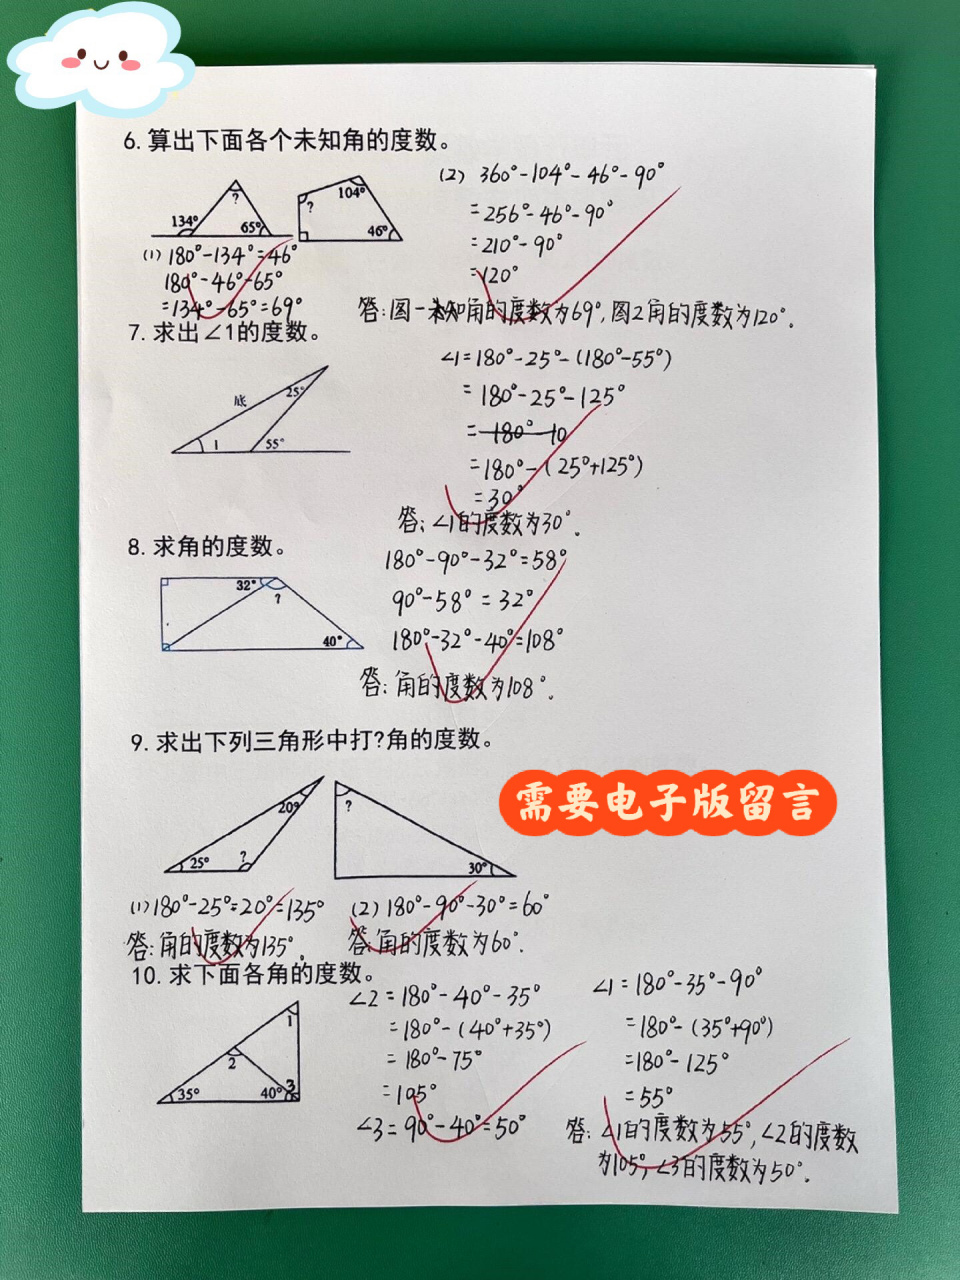 6.算出下面各个未知角的度数。
134° ? 65°
? 104° 46°
(1) 180°-134°=46°
180°-46°-65°
=134°-65°=69°
(2) 360°-104°-46°-90°
=256°-46°-90°
=210°-90°
=120°
答:图一未知角的度数为69°,图2角的度数为120°.
7.求出∠1的度数。
底 25° 1 55°
∠1=180°-25°-(180°-55°)
=180°-25°-125°
=180°-10
=180°-(25°+125°)
=30°
答:∠1的度数为30°.
8.求角的度数。
32° ? 40°
180°-90°-32°=58°
90°-58°=32°
180°-32°-40°=108°
答:角的度数为108°.
9.求出下列三角形中打?角的度数。
20° 25° ?
? 30°
需要电子版留言
(1) 180°-25°=20°=135°
答:角的度数为135°.
(2) 180°-90°-30°=60°
答:角的度数为60°.
10.求下面各角的度数。
1 2 35° 40° 3
∠2=180°-40°-35°
=180°-(40°+35°)
=180°-75°
=105°
∠3=90°-40°=50°
∠1=180°-35°-90°
=180°-(35°+90°)
=180°-125°
=55°
答:∠1的度数为55°,∠2的度数
为105°,∠3的度数为50°.